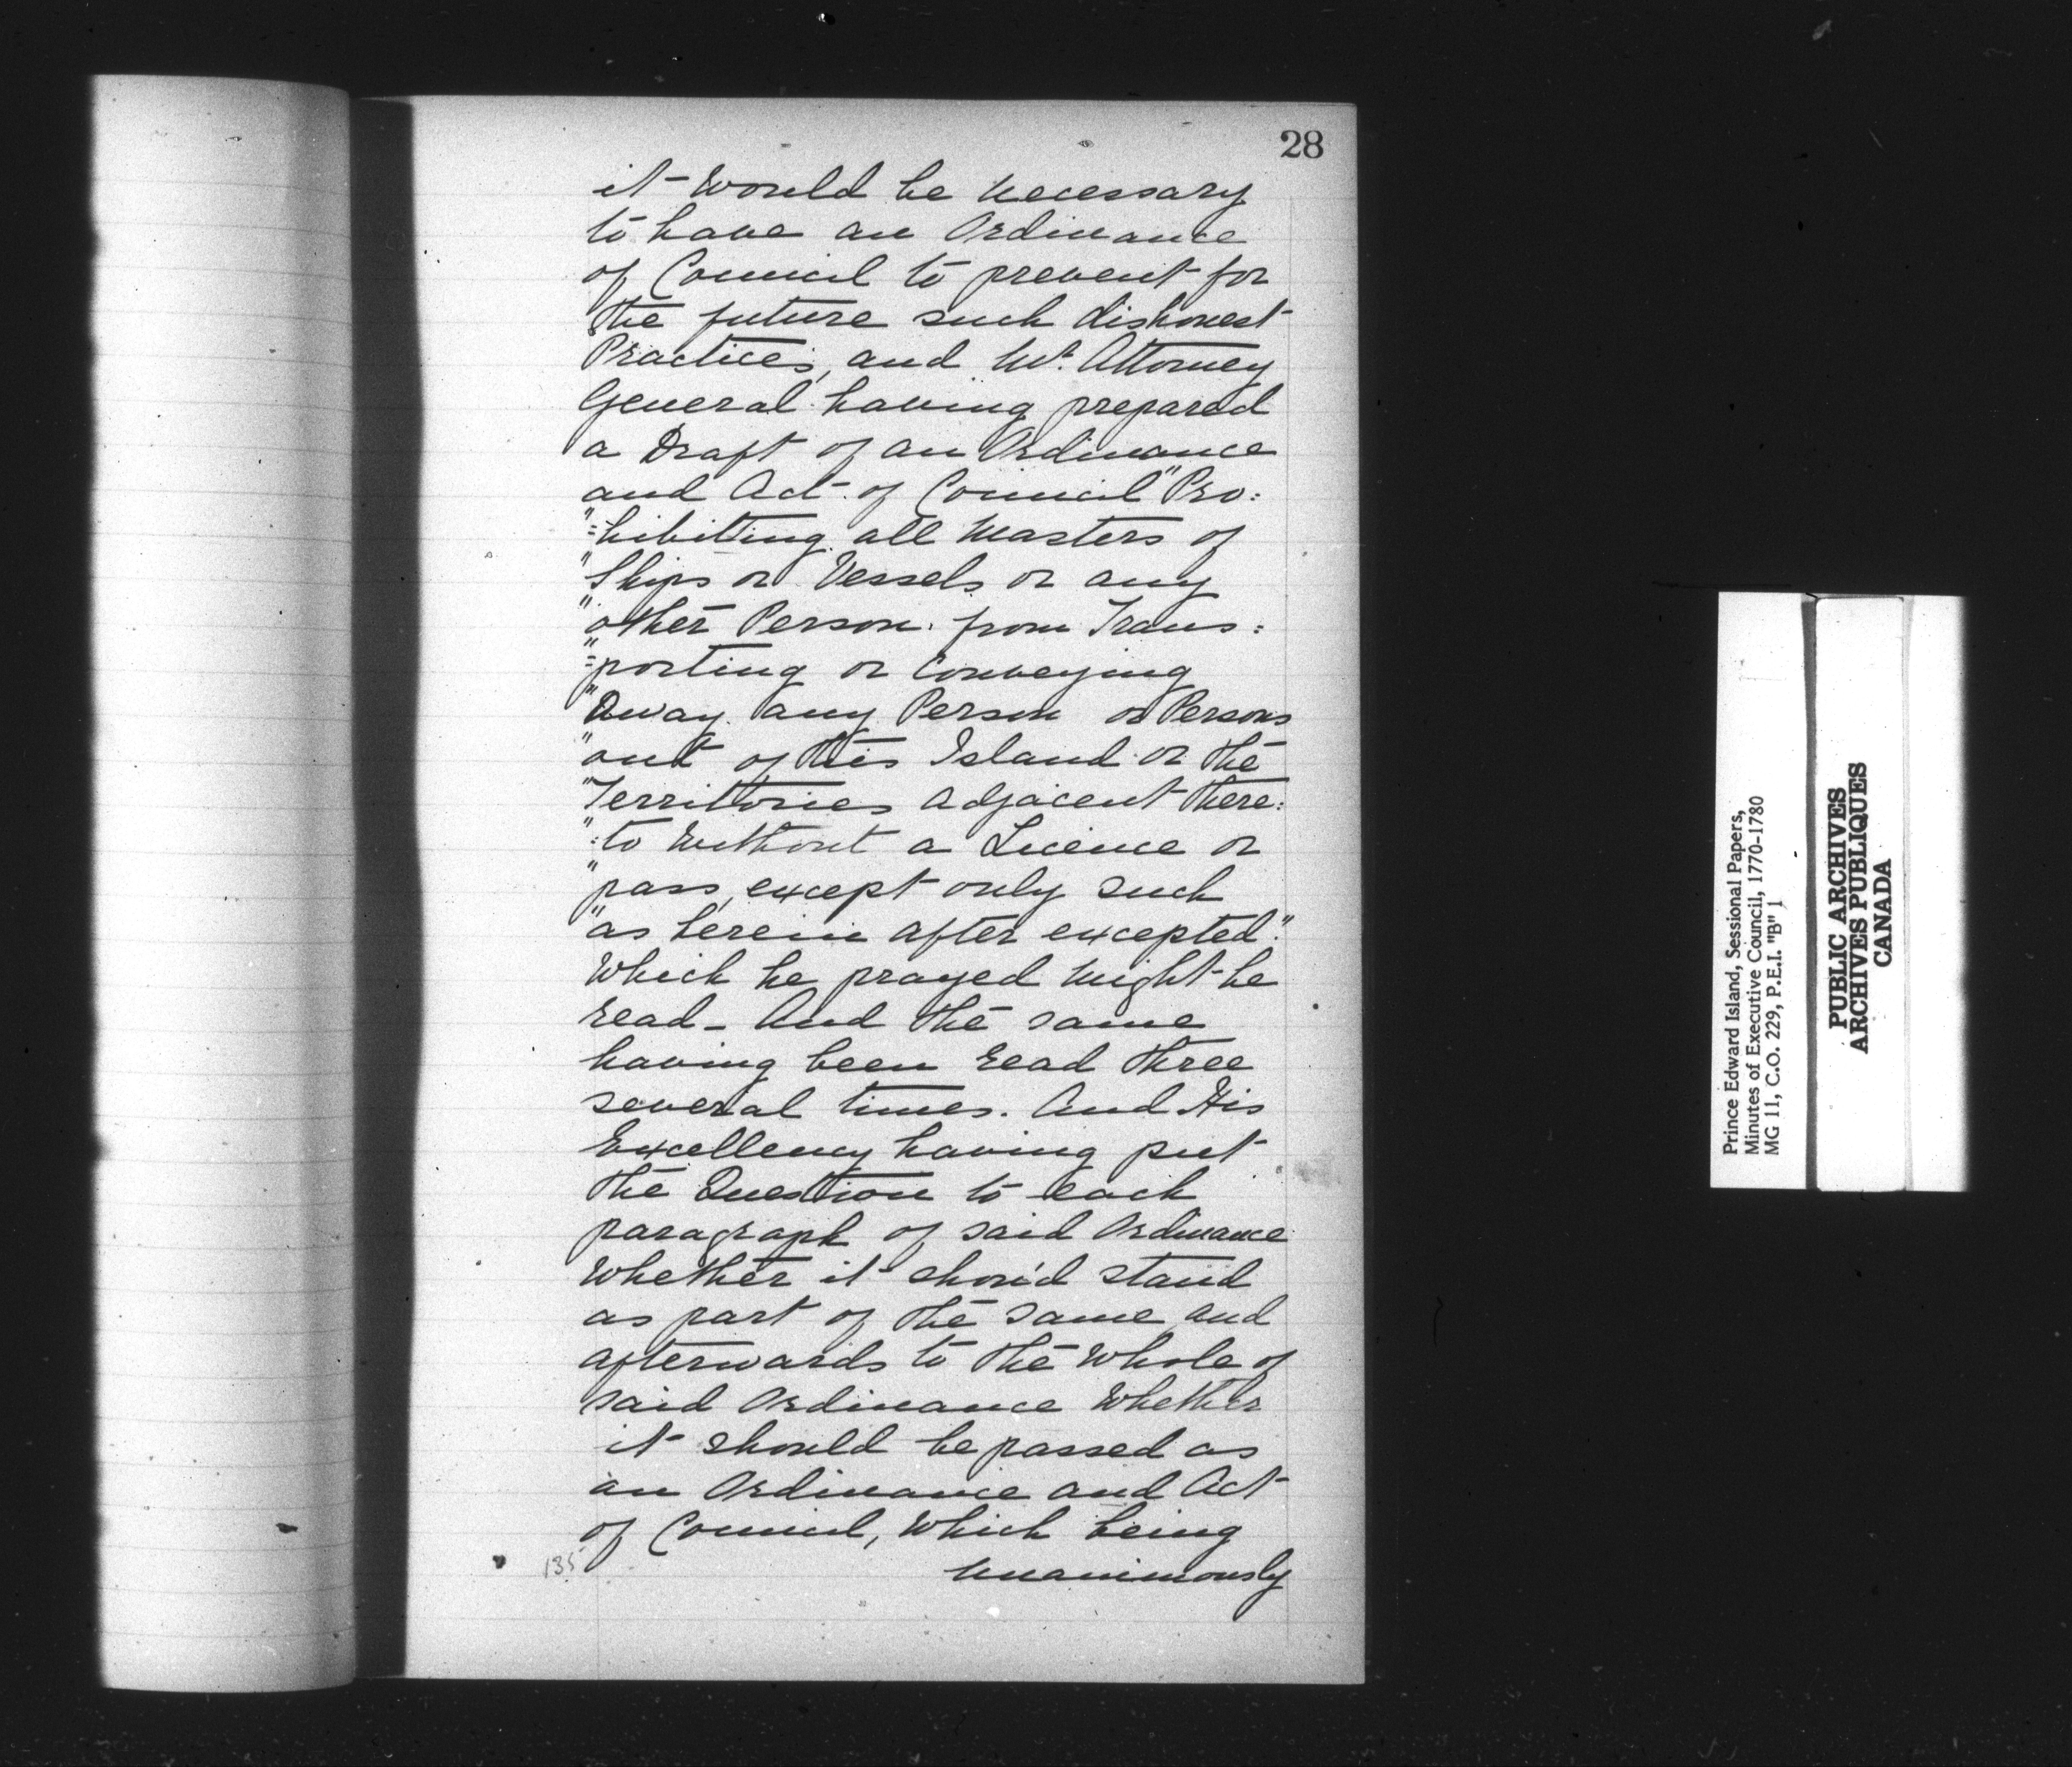 28
it would be necessary
to have an Ordinance
of Council to prevent for
the future such dishonest
Practices, and Mr. Attorney
General having prepared
a Draft of an Ordinance
and Act of Council "Pro:
"=hibiting all Masters of
"Ships or Vessels or any
"other Person from Trans:
"=porting or Conveying
"Away any Person or Persons
"out of this Island or the
"Territories adjacent there:
":to without a Licence or
"pass, except only such
"as herein after excepted."
Which he prayed might be
read - And the same
having been read three
several times. And His
Excellency having put
the Question to each
paragraph of said Ordinance
Whether it shou'd stand
as part of the same and
afterwards to the Whole of
said Ordinance Whether
it should be passed as
an Ordinance and Act
of Council, Which being
unanimously
135
Prince Edward Island, Sessional Papers,
Minutes of Executive Council, 1770-1780
MG 11, C.O. 229, P.E.I. "B" 1
PUBLIC ARCHIVES
ARCHIVES PUBLIQUES
CANADA